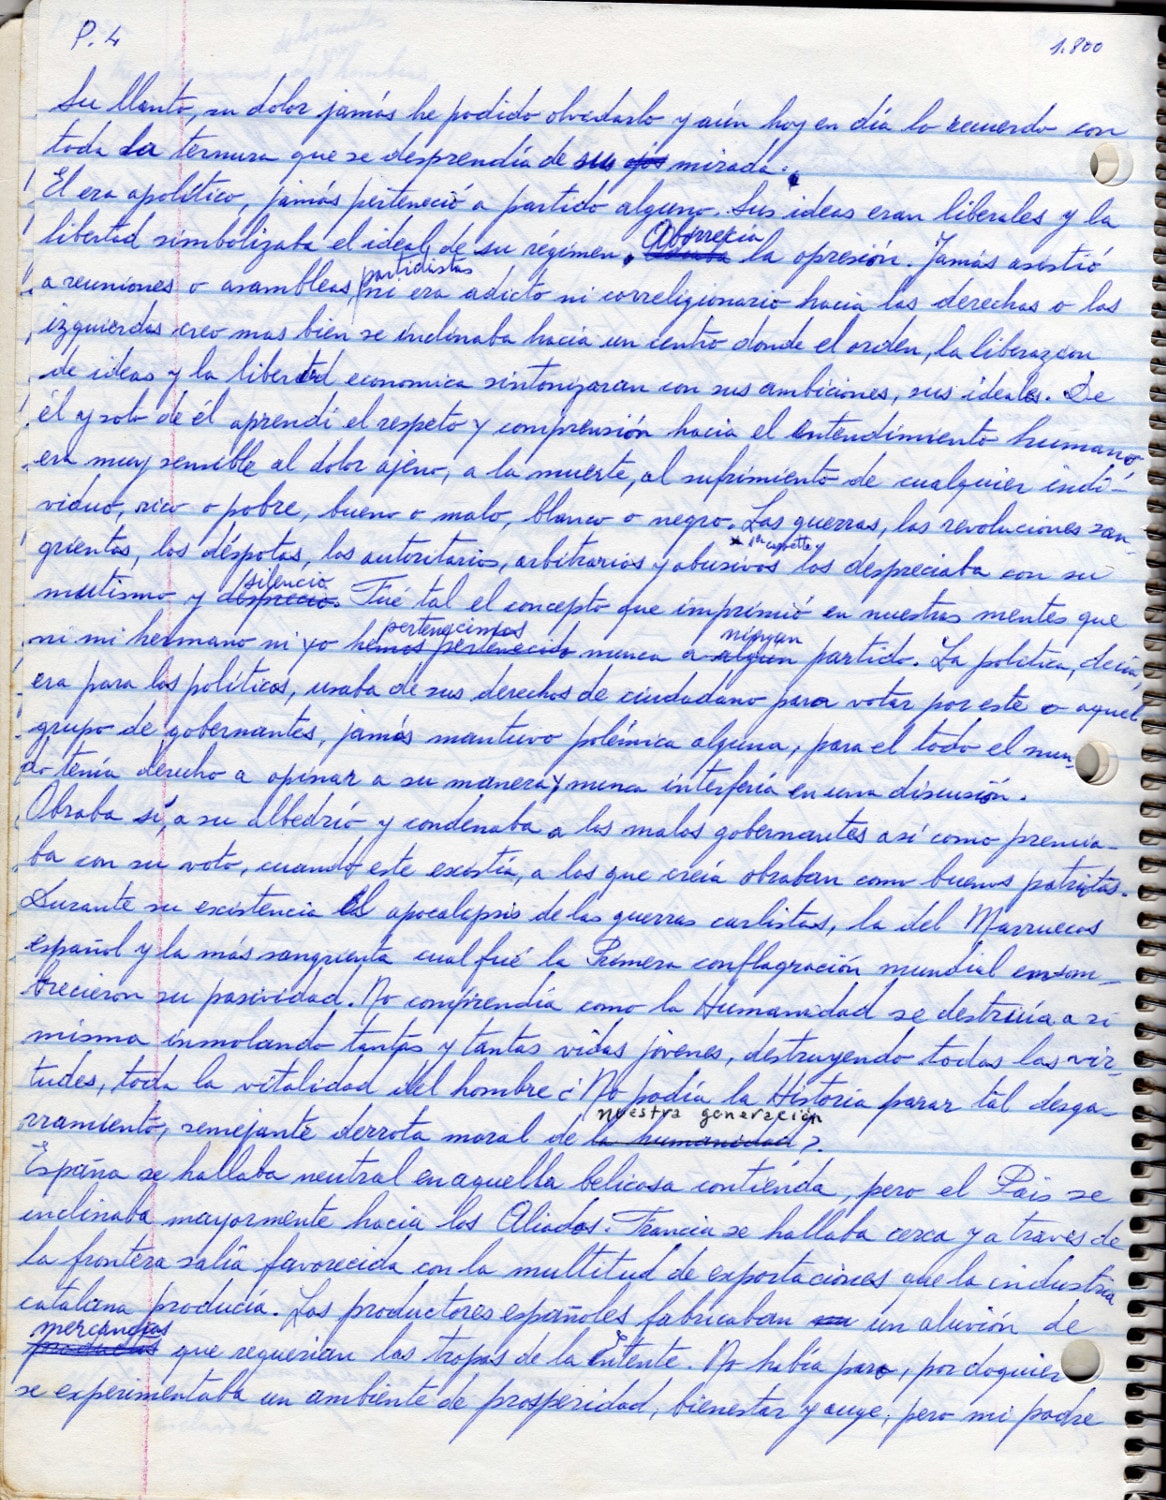 P. 4
1.800
Su llanto, su dolor jamás he podido olvidarlo y aún hoy en día lo recuerdo con
toda la ternura que se desprendía de su ojos mirada.
El era apolítico, jamás perteneció a partido alguno. Sus ideas eran liberales y la
libertad simbolizaba el ideal de su régimen. Aborrecía la opresión. Jamás asistió
a reuniones o asambleas partidistas ni era adicto ni correligionario hacia las derechas o las
izquierdas creo mas bien se inclinaba hacia un centro donde el orden, la liberazcion
de ideas y la libertad economica sintonizaran con sus ambiciones, sus ideales. De
él y solo de él aprendí el respeto y comprensión hacia el entendimiento humano
era muy sensible al dolor ajeno, a la muerte, al sufrimiento de cualquier indi-
viduo, rico o pobre, bueno o malo, blanco o negro. Las guerras, las revoluciones san-
grientas, los déspotas, los autoritarios, arbitrarios y abusivos los despreciaba con su
mutismo y desprecio. silencio Fué tal el concepto que imprimió en nuestras mentes que
ni mi hermano ni yo hemos pertenecido pertenecimos nunca a algun ningun partido. La politica, decía,
era para los politicos, usaba de sus derechos de ciudadano para votar por este o aquel
grupo de gobernantes, jamás mantuvo polémica alguna, para el todo el mun-
do tenía derecho a opinar a su manera y nunca interfería en una discusión.
Obraba sí, a su albedrío y condenaba a los malos gobernantes así como premia-
ba con su voto, cuando este existía, a los que creía obraban como buenos patriotas.
Durante su existencia el apocalepsis de las guerras carlistas, la del Marruecos
español y la más sangrienta cual fué la Primera conflagración mundial ensom-
brecieron su pasividad. No comprendía como la Humanidad se destruía a si
misma inmolando tantas y tantas vidas jóvenes, destruyendo todas las vir-
tudes, toda la vitalidad del hombre ¿No podía la Historia parar tal desga-
rramiento, semejante derrota moral de la humanidad nuestra generación?.
España se hallaba neutral en aquella belicosa contienda, pero el Pais se
inclinaba mayormente hacia los Aliados. Francia se hallaba cerca y a traves de
la frontera salía favorecida con la multitud de exportaciones que la industria
catalana producía. Los productores españoles fabricaban un aluvión de
productos mercancias que requerian las tropas de la Entente. No había paro, por doquier
se experimentaba un ambiente de prosperidad, bienestar y auge, pero mi padre